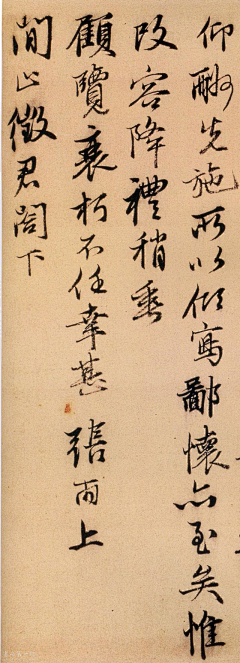 仰酬先施所以傾寫鄙懷亦至矣惟
改容降禮稍垂
顧覽衰朽不任幸甚 張雨上
閒止徵君閣下